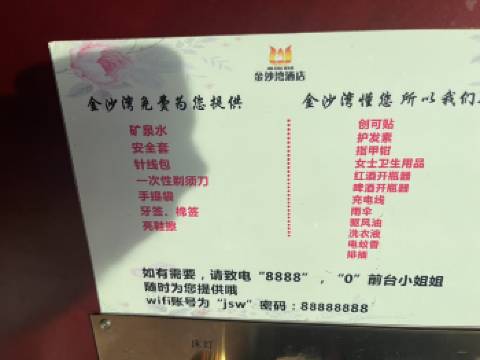 金沙湾酒店
金沙湾免费为您提供
矿泉水
安全套
针线包
一次性剃须刀
手提袋
牙签、棉签
亮鞋擦
金沙湾懂您 所以我们
创可贴
护发素
指甲钳
女士卫生用品
红酒开瓶器
啤酒开瓶器
充电线
雨伞
驱风油
洗衣液
电蚊香
排插
如有需要，请致电“8888”，“0”前台小姐姐
随时为您提供哦
wifi账号为“jsw”密码：88888888
床灯